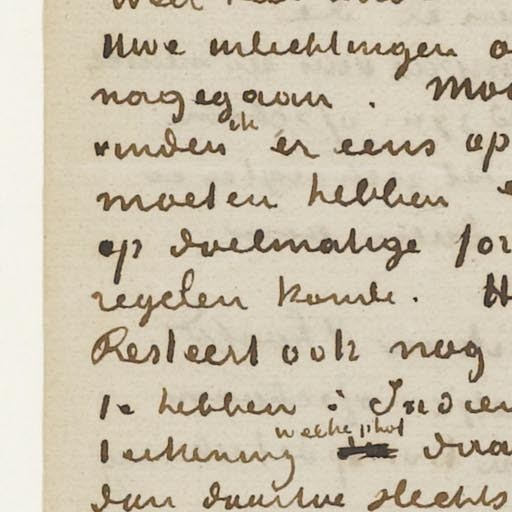 Uwe inlichtingen
nagegaan.
vinden ik er eens op
moeten hebben
op doelmatige
regelen konde.
Resteert ook nog
te hebben : Indien
teekening
dan daartoe slechts